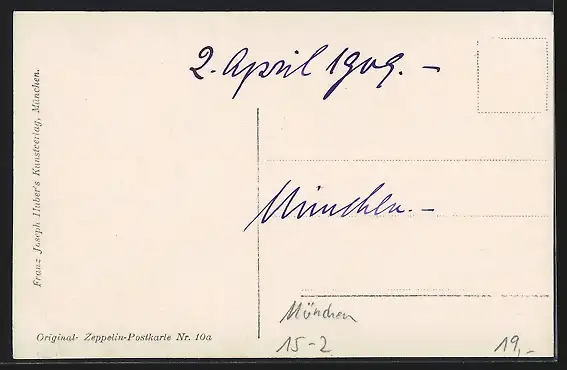 2. April 1909. –
Franz Joseph Huber's Kunstverlag, München.
München. –
Original- Zeppelin-Postkarte Nr. 10a
München
15-2
19,-